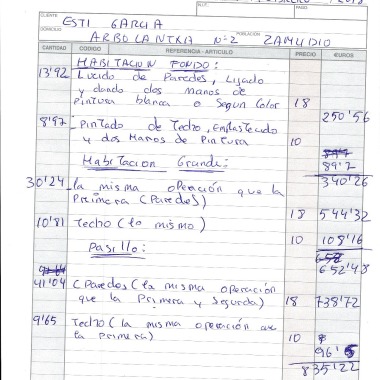 N.I.F.
CLIENTE ESTI GARCIA
DOMICILIO ARBOLANTXA Nº2 POBLACIÓN ZAMUDIO
CANTIDAD CODIGO REFERENCIA - ARTICULO PRECIO €UROS
HABITACION FONDO:
13'92 Lucido de Paredes, Lijado
y dando dos manos de
Pintura blanca o Segun Color 18
250'56
8'97 Pintado de Techo, Emplastecido
y dos Manos de Pintura 10
89'7
89'7
Habitacion Grande: 340'26
30'24 la misma operación que la
Primera (Paredes) 18 544'32
10'81 Techo (lo mismo) 10 108'16
Pasillo:
652'48
41'04 (Paredes (la misma operación
que la Primera y Segunda) 18 738'72
9'65 Techo (la misma operación que
la primera) 10
96'5
835'22